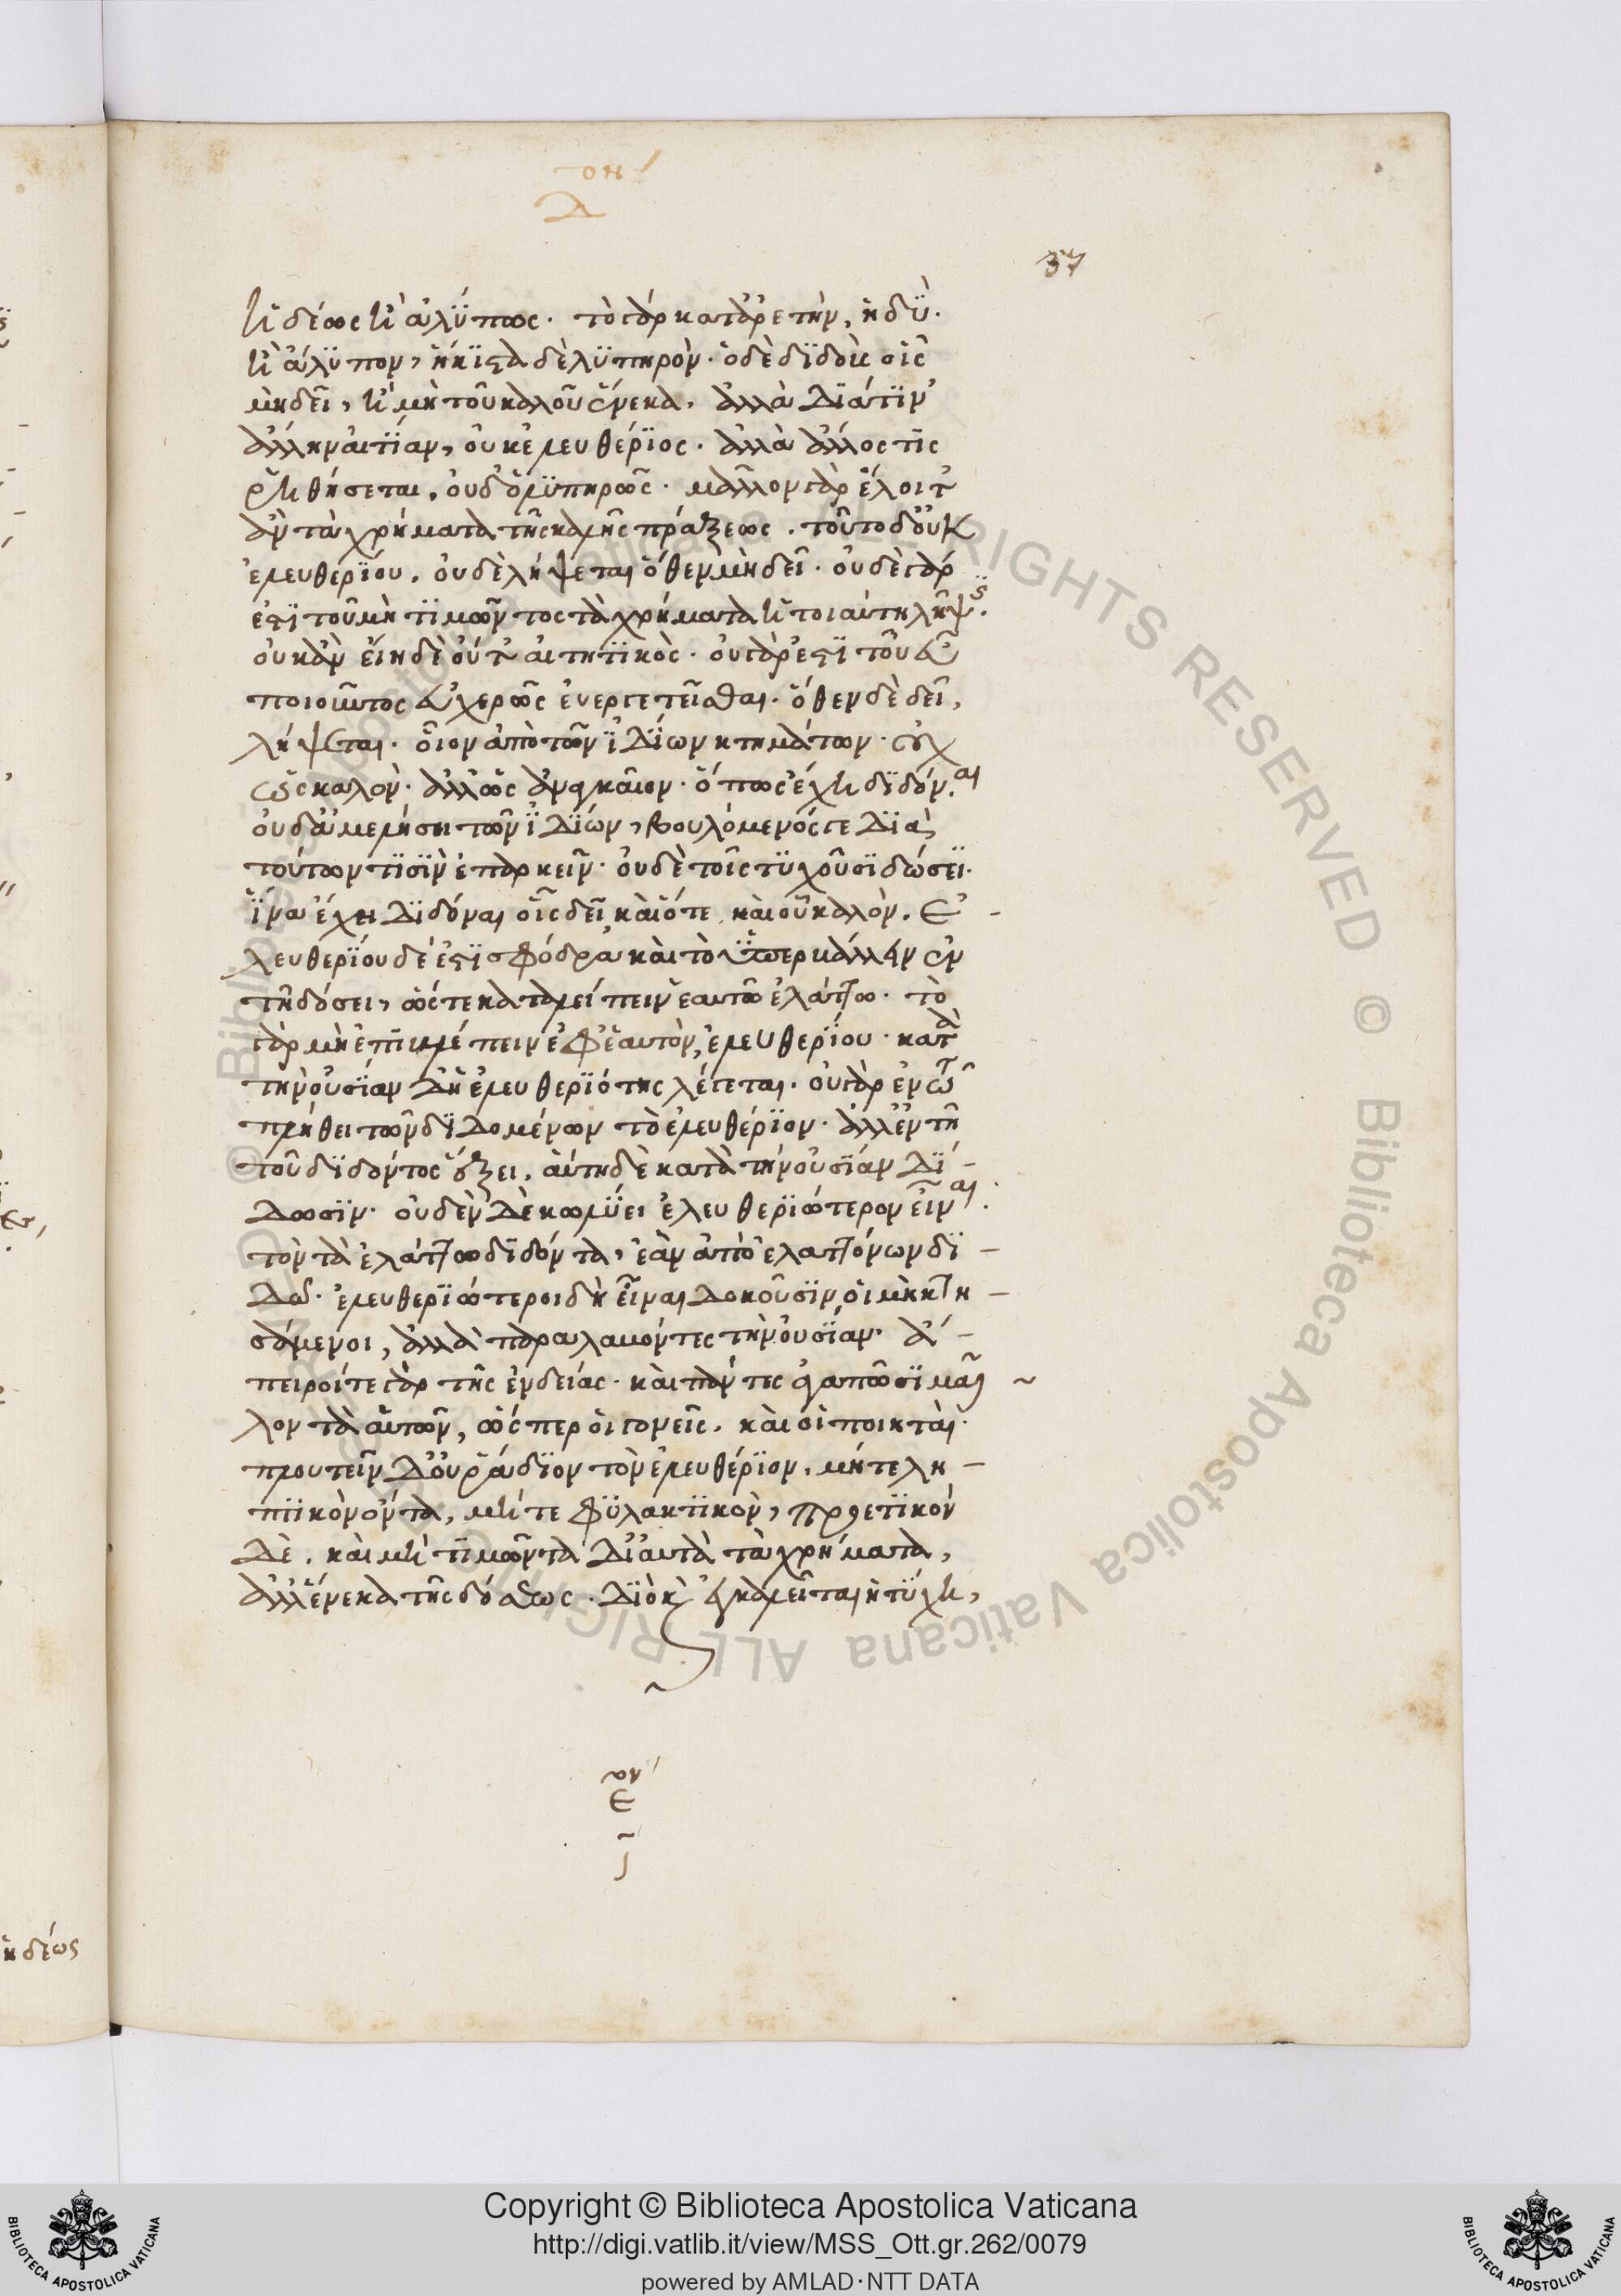 ον
Δ
37
ἡδέως ἢ ἀλύπως. τὸ γὰρ κατ' ἀρετὴν, ἡδὺ.
ἢ ἄλυπον, ἥκιστα δὲ λυπηρόν. ὁ δὲ διδοὺς οἷς
μὴ δεῖ, ἢ μὴ τοῦ καλοῦ ἕνεκα, ἀλλὰ διά τιν'
ἄλλην αἰτίαν, οὐκ ἐλευθέριος. ἀλλὰ ἄλλος τὶς
ῥηθήσεται. οὐδ' ὁ λυπηρῶς. μᾶλλον γὰρ ἕλοιτ'
ἂν τὰ χρήματα τῆς καλῆς πράξεως. τοῦτο δ' οὐκ
ἐλευθερίου. οὐδὲ λήψεται ὅθεν μὴ δεῖ. οὐδὲ γάρ
ἐστι τοῦ μὴ τιμῶντος τὰ χρήματα ἡ τοιαύτη λῆψις.
οὐκ ἂν εἴη δὲ οὔτ' αἰτητικὸς. οὐ γάρ ἐστι τοῦ εὖ
ποιοῦντος εὐχερῶς ἐνεργετεῖσθαι. ὅθεν δὲ δεῖ,
λήψεται. οἷον ἀπὸ τῶν ἰδίων κτημάτων. οὐχ
ὡς καλὸν. ἀλλ' ὡς ἀναγκαῖον. ὅπως ἔχη διδόναι.
οὐδ' ἀμελήσει τῶν ἰδίων, βουλόμενός γε διὰ
τούτων τισὶν ἐπαρκεῖν. οὐδὲ τοῖς τυχοῦσι δώσει.
ἵνα ἔχει διδόναι οἷς δεῖ καὶ ὅτε καὶ οὗ καλόν. Ἐ-
λευθερίου δέ ἐστι σφόδρα καὶ τὸ ὑπερβάλλειν ἐν
τῇ δόσει, ὥστε καταλείπειν ἑαυτῶ ἐλάττω. τὸ
γὰρ μὴ ἐπιβλέπειν ἐφ' ἑαυτὸν, ἐλευθερίου. κατὰ
τὴν οὐσίαν δ' ἡ ἐλευθεριότης λέγεται. οὐ γὰρ ἐν τῶ
πλήθει τῶν διδομένων τὸ ἐλευθέριον. ἀλλ' ἐν τῇ
τοῦ διδόντος ἕξει. αὕτη δὲ κατὰ τὴν οὐσίαν δί-
δωσιν. οὐδὲν δὲ κωλύει ἐλευθεριώτερον εἶναι.
τὸν τὰ ἐλάττω διδόντα, ἐὰν ἀπὸ ἐλαττόνων δι-
δῶ. ἐλευθεριώτεροι δὴ εἶναι δοκοῦσιν οἱ μὴ κτη-
σάμενοι, ἀλλὰ παραλαβόντες τὴν οὐσίαν. ἄ-
πειροί τε γὰρ τῆς ἐνδείας. καὶ πάντες ἀγαπῶσι μᾶλ
λον τὰ αὑτῶν, ὥσπερ οἱ γονεῖς. καὶ οἱ ποιηταὶ.
πλουτεῖν δ' οὐ ῥάδιον τὸν ἐλευθέριον. μήτε λη-
πτικὸν ὄντα, μήτε φυλακτικὸν, προετικὸν
δὲ. καὶ μὴ τιμῶντα δι' αὐτὰ τὰ χρήματα,
ἀλλ' ἕνεκα τῆς δόσεως. διὸ καὶ ἐγκαλεῖται ἡ τύχη,
ον
ε
ἡδέως